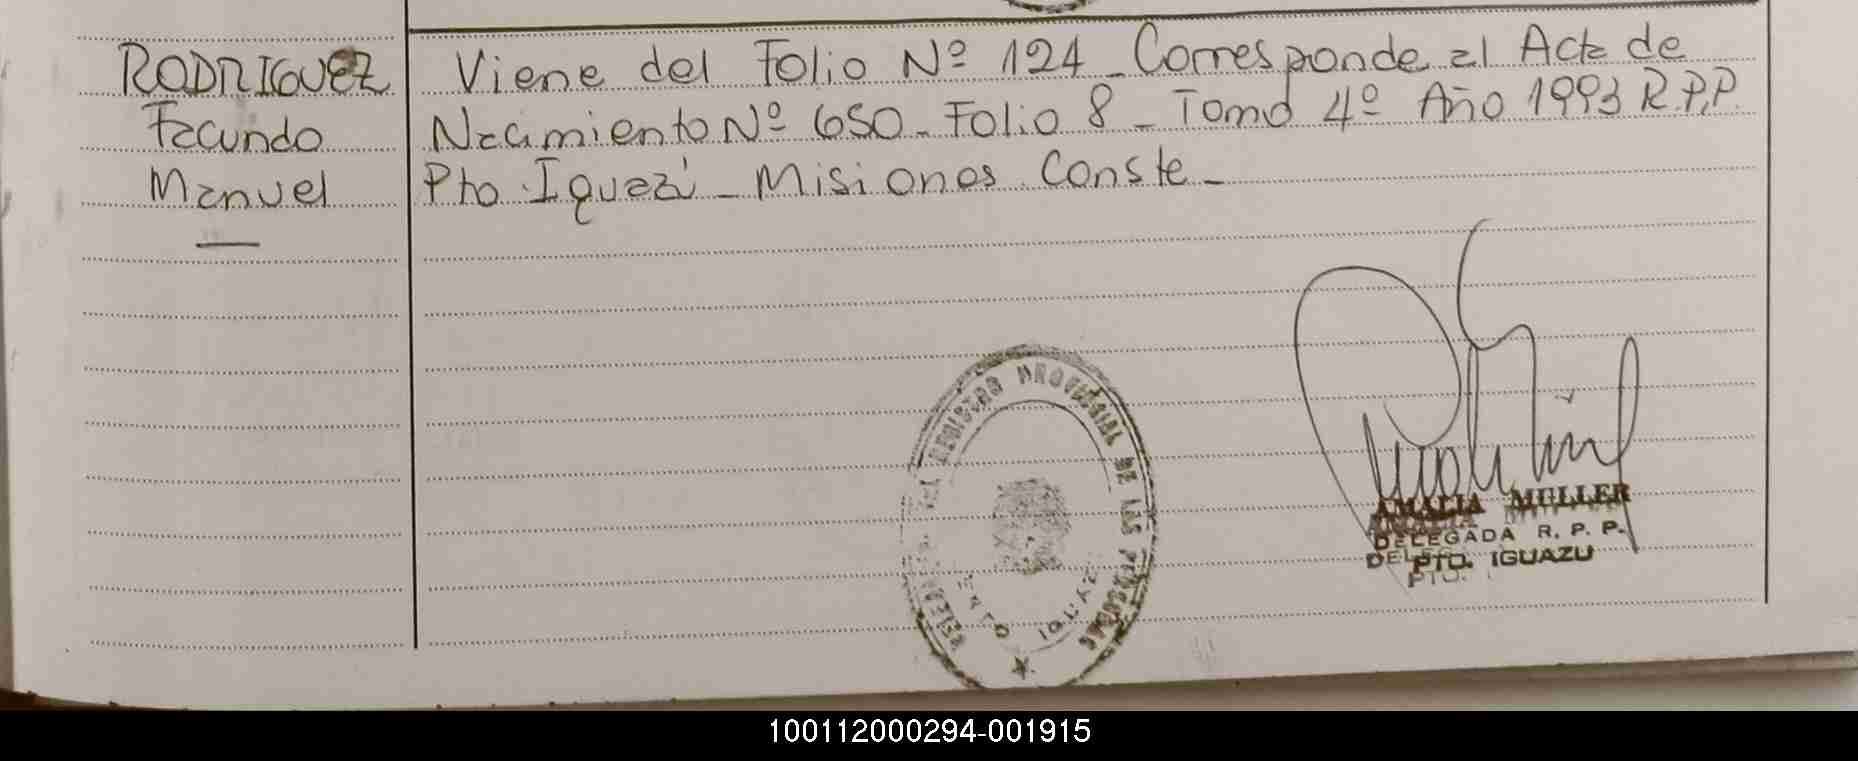 RODRIGUEZ
Facundo
Manuel
Viene del Folio Nº 124 - Corresponde al Acta de
Nacimiento Nº 650 - Folio 8 - Tomo 4º Año 1993 R.P.P.
Pto. Iguazú - Misiones. Conste -
REGISTRO PROVINCIAL DE LAS PERSONAS
IGUAZU
AMALIA MULLER
DELEGADA R. P. P.
PTO. IGUAZU
100112000294-001915